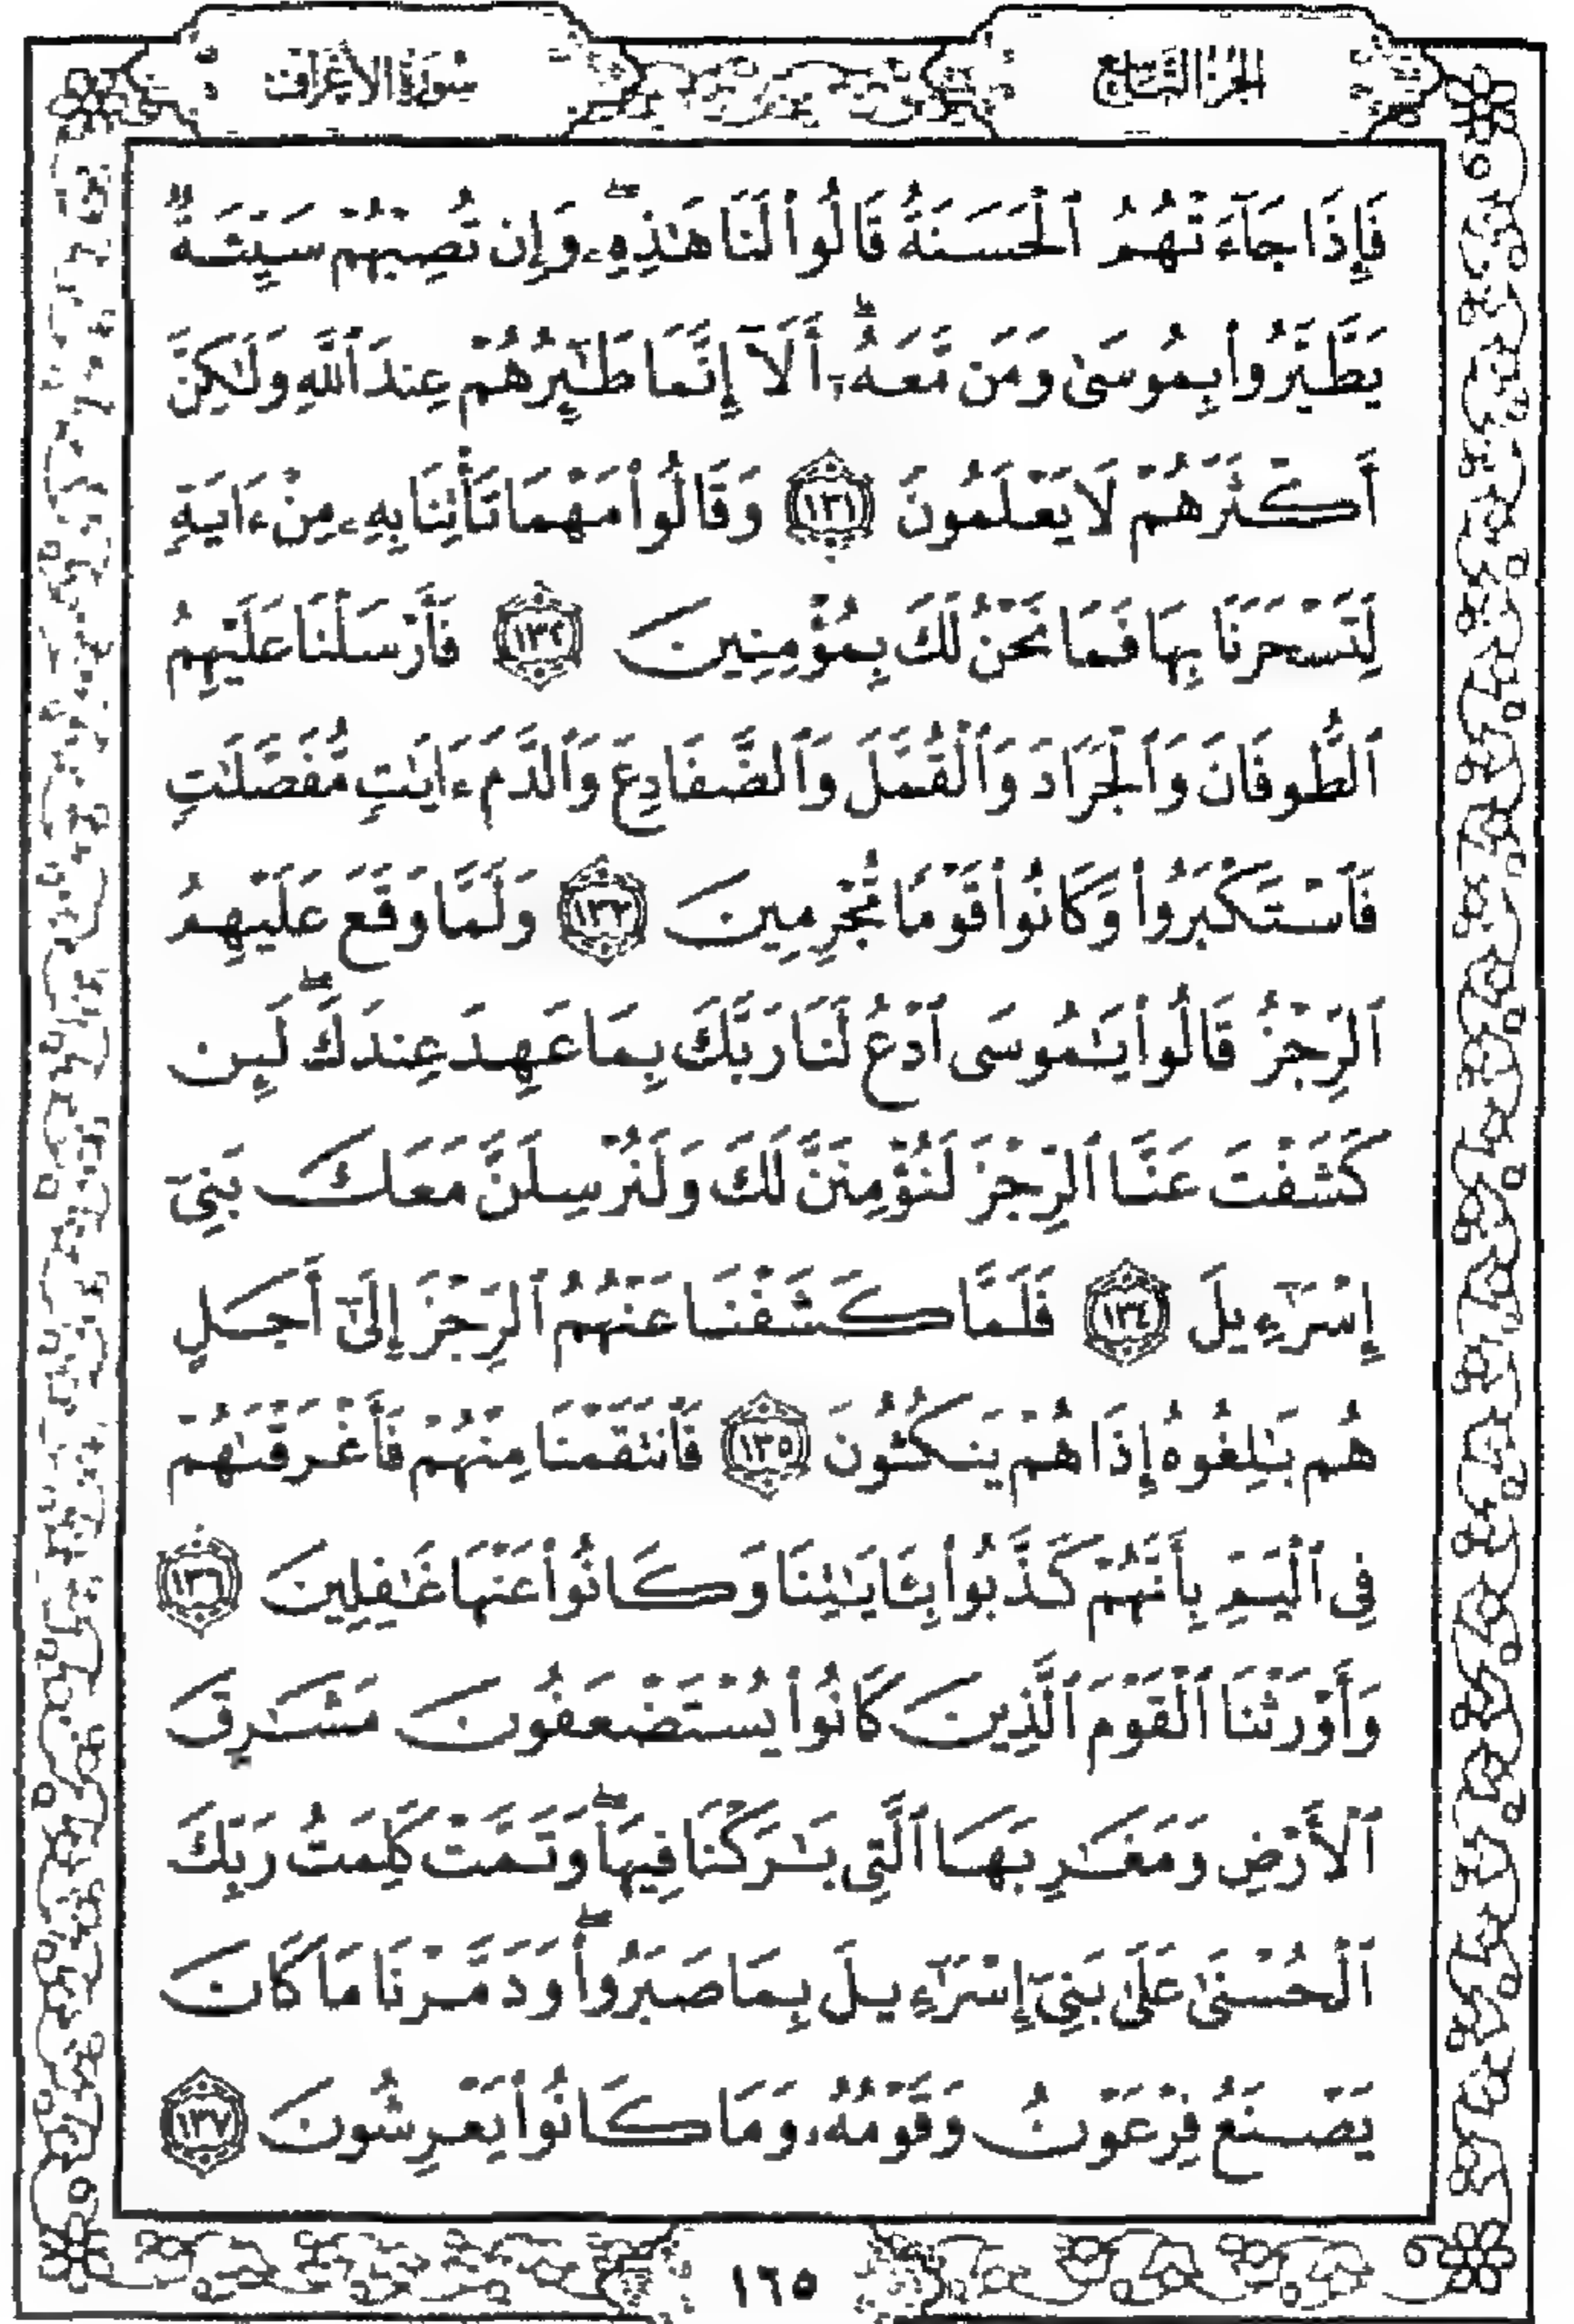 الجزء التاسع
سورة الأعراف
فَإِذَا جَآءَتْهُمُ ٱلْحَسَنَةُ قَالُوا۟ لَنَا هَٰذِهِۦ ۖ وَإِن تُصِبْهُمْ سَيِّئَةٌ
يَطَّيَّرُوا۟ بِمُوسَىٰ وَمَن مَّعَهُۥٓ ۗ أَلَآ إِنَّمَا طَٰٓئِرُهُمْ عِندَ ٱللَّهِ وَلَٰكِنَّ
أَكْثَرَهُمْ لَا يَعْلَمُونَ ١٣١ وَقَالُوا۟ مَهْمَا تَأْتِنَا بِهِۦ مِنْ ءَايَةٍ
لِّتَسْحَرَنَا بِهَا فَمَا نَحْنُ لَكَ بِمُؤْمِنِينَ ١٣٢ فَأَرْسَلْنَا عَلَيْهِمُ
ٱلطُّوفَانَ وَٱلْجَرَادَ وَٱلْقُمَّلَ وَٱلضَّفَادِعَ وَٱلدَّمَ ءَايَٰتٍ مُّفَصَّلَٰتٍ
فَٱسْتَكْبَرُوا۟ وَكَانُوا۟ قَوْمًا مُّجْرِمِينَ ١٣٣ وَلَمَّا وَقَعَ عَلَيْهِمُ
ٱلرِّجْزُ قَالُوا۟ يَٰمُوسَى ٱدْعُ لَنَا رَبَّكَ بِمَا عَهِدَ عِندَكَ ۖ لَئِن
كَشَفْتَ عَنَّا ٱلرِّجْزَ لَنُؤْمِنَنَّ لَكَ وَلَنُرْسِلَنَّ مَعَكَ بَنِىٓ
إِسْرَٰٓءِيلَ ١٣٤ فَلَمَّا كَشَفْنَا عَنْهُمُ ٱلرِّجْزَ إِلَىٰٓ أَجَلٍ
هُم بَٰلِغُوهُ إِذَا هُمْ يَنكُثُونَ ١٣٥ فَٱنتَقَمْنَا مِنْهُمْ فَأَغْرَقْنَٰهُمْ
فِى ٱلْيَمِّ بِأَنَّهُمْ كَذَّبُوا۟ بِـَٔايَٰتِنَا وَكَانُوا۟ عَنْهَا غَٰفِلِينَ ١٣٦
وَأَوْرَثْنَا ٱلْقَوْمَ ٱلَّذِينَ كَانُوا۟ يُسْتَضْعَفُونَ مَشَٰرِقَ
ٱلْأَرْضِ وَمَغَٰرِبَهَا ٱلَّتِى بَٰرَكْنَا فِيهَا ۖ وَتَمَّتْ كَلِمَتُ رَبِّكَ
ٱلْحُسْنَىٰ عَلَىٰ بَنِىٓ إِسْرَٰٓءِيلَ بِمَا صَبَرُوا۟ ۖ وَدَمَّرْنَا مَا كَانَ
يَصْنَعُ فِرْعَوْنُ وَقَوْمُهُۥ وَمَا كَانُوا۟ يَعْرِشُونَ ١٣٧
١٦٥